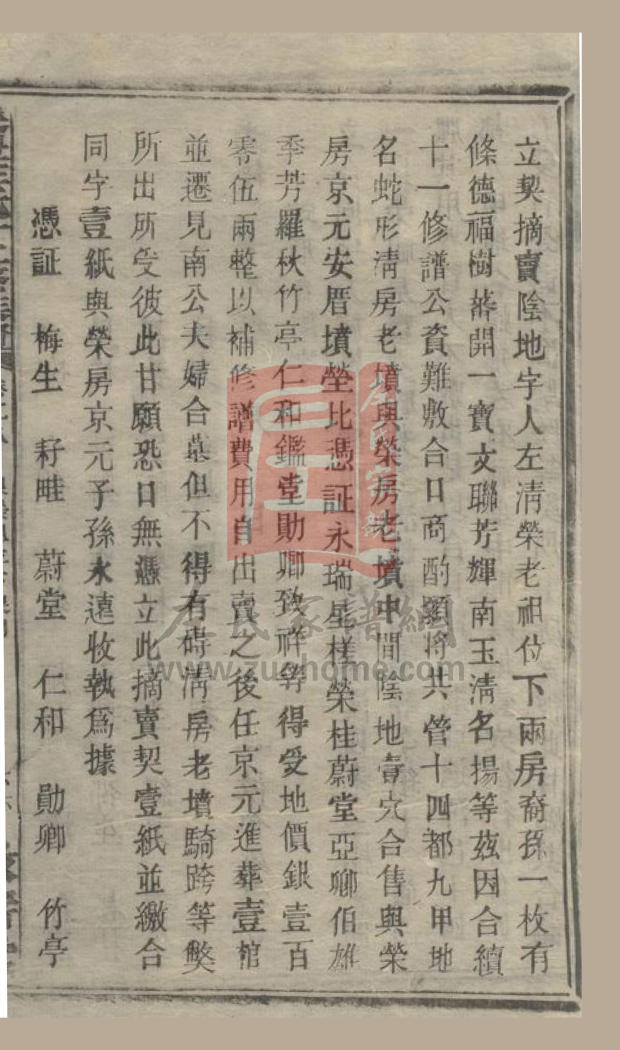 立契摘賣陰地字人左淸榮老祖位下兩房裔孫一枚有
條德福樹蕃開一寶文聯芳輝南玉淸名揚等茲因合續
十一修譜公資難敷合口商酌願將共管十四都九甲地
名蛇形淸房老墳與榮房老墳中間陰地壹穴合售與榮
房京元安厝墳塋比憑証永瑞星槎榮桂蔚堂亞卿伯雄
季芳羅秋竹亭仁和鑑堂勛卿致祥等得受地價銀壹百
零伍兩整以補修譜費用自出賣之後任京元進葬壹棺
並遷見南公夫婦合墓但不得有碍淸房老墳騎跨等獘
所出所受彼此甘願恐口無憑立此摘賣契壹紙並繳合
同字壹紙與榮房京元子孫永遠收執爲據
憑証 梅生 籽畦 蔚堂 仁和 勛卿 竹亭
左氏家譜網
www.zuohome.com